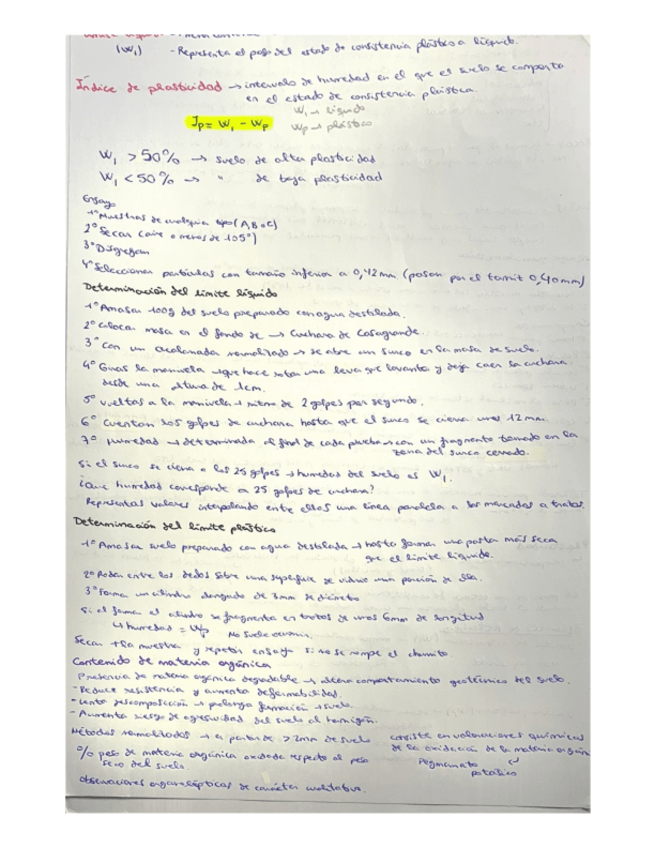 (W₁) - Representa el paso del estado de consistencia plástico a líquido.
Índice de plasticidad → intervalo de humedad en el que el suelo se comporta
en el estado de consistencia plástica.
Ip = W₁ - Wp
W₁ → líquido
Wp → plástico
W₁ > 50% → suelo de alta plasticidad
W₁ < 50% → " de baja plasticidad
Ensayo
1º Muestras de cualquier tipo (A, B o C)
2º Secar (aire o menos de 105º)
3º Disgregan
4º Seleccionar partículas con tamaño inferior a 0,42mm (pasan por el tamiz 0,40mm)
Determinación del límite líquido
1º Amasar 100g del suelo preparado con agua destilada.
2º Colocar masa en el fondo de → Cuchara de Casagrande.
3º Con un acanalador normalizado → se abre un surco en la masa de suelo.
4º Giras la manivela → que hace rotar una leva que levanta y deja caer la cuchara
desde una altura de 1cm.
5º vueltas a la manivela → ritmo de 2 golpes por segundo.
6º Cuentan los golpes de cuchara hasta que el surco se cierra unos 12mm.
7º Humedad → determinada al final de cada prueba → con un fragmento tomado en la
zona del surco cerrado.
Si el surco se cierra a los 25 golpes → humedad del suelo es W₁.
¿Que humedad corresponde a 25 golpes de cuchara?
Representas valores interpolando entre ellos una línea paralela a las marcadas a trazos.
Determinación del límite plástico
1º Amasar suelo preparado con agua destilada → hasta formar una pasta más seca
que el límite líquido.
2º Rodar entre los dedos sobre una superficie de vidrio una porción de
3º Forma un cilindro alargado de 3mm de diámetro
Si al formar el cilindro se fragmenta en trozos de unos 6mm de longitud
↳ humedad = Wp No suele ocurrir,
Secar + la muestra y repetir ensayo si no se rompe el churrito
Contenido de materia orgánica
Presencia de materia orgánica degradable → altera comportamiento geotécnico del suelo.
- Reduce resistencia y aumenta deformabilidad.
- Lenta descomposición → prolonga → suelo.
- Aumenta riesgo de agresividad del suelo al hormigón.
Métodos normalizados → a partir de >2mm de suelo consiste en valoraciones químicas
de la oxidación de la materia orgánica
% peso de materia orgánica oxidada respecto al peso
seco del suelo.
Permanganato
potásico
Observaciones organolépticas de carácter cualitativo.